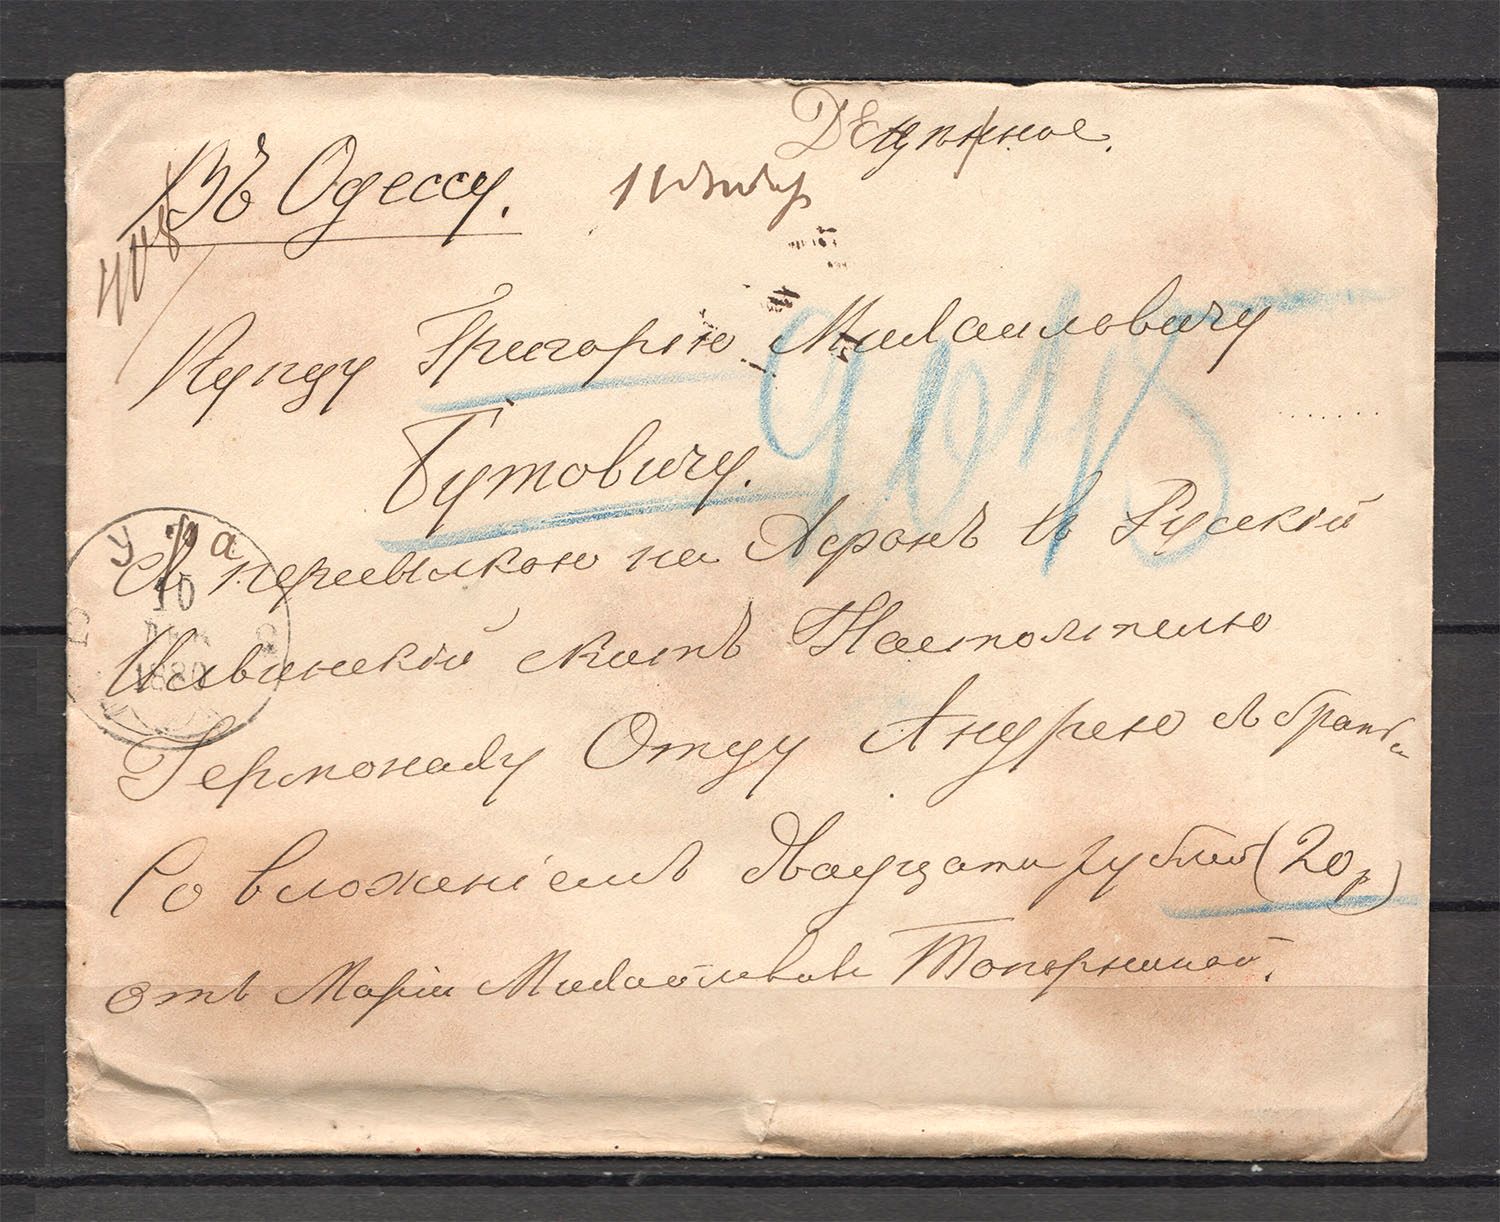 Денежное.
Въ Одессу.
408
Купцу Григорію Михаиловичу
Бутовичу.
9018
Уфа
10
ДЕК
1880
Съ пересылкою на Афонъ въ Русскій
Ильинскій скитъ Настоятелю
Іермонаху Отцу Андрею съ братіи
Со вложеніемъ двадцати рублей (20 р)
отъ Маріи Михайловны Топорниной.